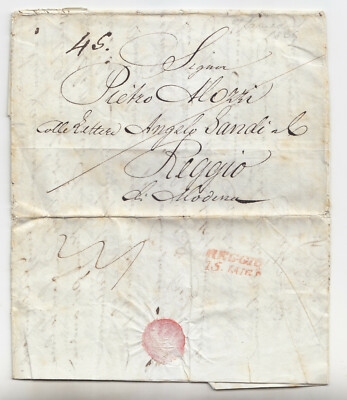 45.
Signor
Pietro Mozzi
colle Lettere Angelo Sandi e C
Reggio
di Modena
REGGIO
15